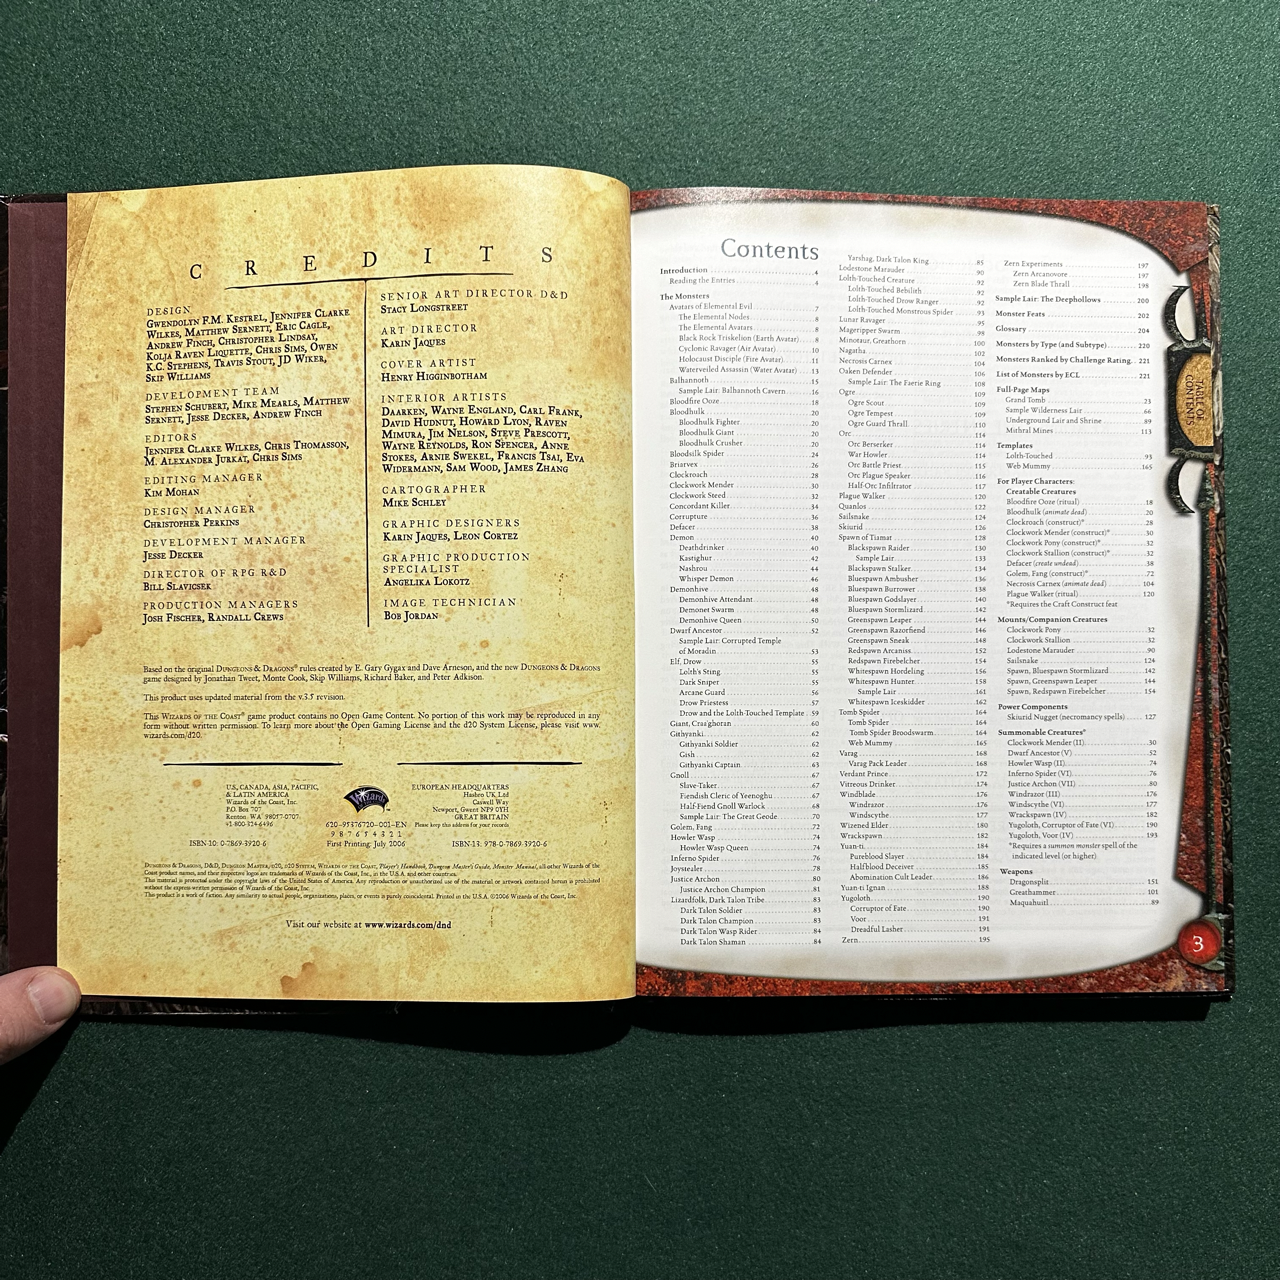 CREDITS
DESIGN
Gwendolyn F.M. Kestrel, Jennifer Clarke
Wilkes, Matthew Sernett, Eric Cagle,
Andrew Finch, Christopher Lindsay,
Kolja Raven Liquette, Chris Sims, Owen
K.C. Stephens, Travis Stout, JD Wiker,
Skip Williams
DEVELOPMENT TEAM
Stephen Schubert, Mike Mearls, Matthew
Sernett, Jesse Decker, Andrew Finch
EDITORS
Jennifer Clarke Wilkes, Chris Thomasson,
M. Alexander Jurkat, Chris Sims
EDITING MANAGER
Kim Mohan
DESIGN MANAGER
Christopher Perkins
DEVELOPMENT MANAGER
Jesse Decker
DIRECTOR OF RPG R&D
Bill Slavicsek
PRODUCTION MANAGERS
Josh Fischer, Randall Crews
SENIOR ART DIRECTOR D&D
Stacy Longstreet
ART DIRECTOR
Karin Jaques
COVER ARTIST
Henry Higginbotham
INTERIOR ARTISTS
Daarken, Wayne England, Carl Frank,
David Hudnut, Howard Lyon, Raven
Mimura, Jim Nelson, Steve Prescott,
Wayne Reynolds, Ron Spencer, Anne
Stokes, Arnie Swekel, Francis Tsai, Eva
Widermann, Sam Wood, James Zhang
CARTOGRAPHER
Mike Schley
GRAPHIC DESIGNERS
Karin Jaques, Leon Cortez
GRAPHIC PRODUCTION
SPECIALIST
Angelika Lokotz
IMAGE TECHNICIAN
Bob Jordan
Based on the original Dungeons & Dragons® rules created by E. Gary Gygax and Dave Arneson, and the new Dungeons & Dragons
game designed by Jonathan Tweet, Monte Cook, Skip Williams, Richard Baker, and Peter Adkison.
This product uses updated material from the v.3.5 revision.
This Wizards of the Coast® game product contains no Open Game Content. No portion of this work may be reproduced in any
form without written permission. To learn more about the Open Gaming License and the d20 System License, please visit www.
wizards.com/d20.
U.S., CANADA, ASIA, PACIFIC,
& LATIN AMERICA
Wizards of the Coast, Inc.
P.O. Box 707
Renton WA 98057-0707
+1-800-324-6496
Wizards
620–95376720–001–EN
9 8 7 6 5 4 3 2 1
First Printing: July 2006
EUROPEAN HEADQUARTERS
Hasbro UK Ltd
Caswell Way
Newport, Gwent NP9 0YH
GREAT BRITAIN
Please keep this address for your records
ISBN-10: 0-7869-3920-6
ISBN-13: 978-0-7869-3920-6
Dungeons & Dragons, D&D, Dungeon Master, d20, d20 System, Wizards of the Coast, Player's Handbook, Dungeon Master's Guide, Monster Manual, all other Wizards of the
Coast product names, and their respective logos are trademarks of Wizards of the Coast, Inc., in the U.S.A. and other countries.
This material is protected under the copyright laws of the United States of America. Any reproduction or unauthorized use of the material or artwork contained herein is prohibited
without the express written permission of Wizards of the Coast, Inc.
This product is a work of fiction. Any similarity to actual people, organizations, places, or events is purely coincidental. Printed in the U.S.A. ©2006 Wizards of the Coast, Inc.
Visit our website at www.wizards.com/dnd
Contents
Introduction 4
Reading the Entries 4
The Monsters
Avatars of Elemental Evil 7
The Elemental Nodes 8
The Elemental Avatars 8
Black Rock Triskelion (Earth Avatar) 8
Cyclonic Ravager (Air Avatar) 10
Holocaust Disciple (Fire Avatar) 11
Waterveiled Assassin (Water Avatar) 13
Balhannoth 15
Sample Lair: Balhannoth Cavern 16
Bloodfire Ooze 18
Bloodhulk 20
Bloodhulk Fighter 20
Bloodhulk Giant 20
Bloodhulk Crusher 20
Bloodsilk Spider 24
Briarvex 26
Clockroach 28
Clockwork Mender 30
Clockwork Steed 32
Concordant Killer 34
Corrupture 36
Defacer 38
Demon 40
Deathdrinker 40
Kastighur 42
Nashrou 44
Whisper Demon 46
Demonhive 48
Demonhive Attendant 48
Demonet Swarm 48
Demonhive Queen 50
Dwarf Ancestor 52
Sample Lair: Corrupted Temple
of Moradin 53
Elf, Drow 55
Lolth's Sting 55
Dark Sniper 55
Arcane Guard 56
Drow Priestess 57
Drow and the Lolth-Touched Template 59
Giant, Craa'ghoran 60
Githyanki 62
Githyanki Soldier 62
Gish 62
Githyanki Captain 63
Gnoll 67
Slave-Taker 67
Fiendish Cleric of Yeenoghu 67
Half-Fiend Gnoll Warlock 68
Sample Lair: The Great Geode 70
Golem, Fang 72
Howler Wasp 74
Howler Wasp Queen 74
Inferno Spider 76
Joystealer 78
Justice Archon 80
Justice Archon Champion 81
Lizardfolk, Dark Talon Tribe 83
Dark Talon Soldier 83
Dark Talon Champion 83
Dark Talon Wasp Rider 84
Dark Talon Shaman 84
Varshag, Dark Talon King 85
Lodestone Marauder 90
Lolth-Touched Creature 92
Lolth-Touched Bebilith 92
Lolth-Touched Drow Ranger 92
Lolth-Touched Monstrous Spider 93
Lunar Ravager 95
Magerippper Swarm 98
Minotaur, Greathorn 100
Nagatha 102
Necrosis Carnex 104
Oaken Defender 106
Sample Lair: The Faerie Ring 108
Ogre 109
Ogre Scout 109
Ogre Tempest 109
Ogre Guard Thrall 110
Orc 114
Orc Berserker 114
War Howler 114
Orc Battle Priest 115
Orc Plague Speaker 116
Half-Orc Infiltrator 117
Plague Walker 120
Quanlos 122
Sailsnake 124
Skiurid 126
Spawn of Tiamat 128
Blackspawn Raider 130
Sample Lair 133
Blackspawn Stalker 134
Bluespawn Ambusher 136
Bluespawn Burrower 138
Bluespawn Godslayer 140
Bluespawn Stormlizard 142
Greenspawn Leaper 144
Greenspawn Razorfiend 146
Greenspawn Sneak 148
Redspawn Arcaniss 152
Redspawn Firebelcher 154
Whitespawn Hordeling 156
Whitespawn Hunter 158
Sample Lair 161
Whitespawn Iceskidder 162
Tomb Spider 164
Tomb Spider 164
Tomb Spider Broodswarm 164
Web Mummy 165
Varag 168
Varag Pack Leader 168
Verdant Prince 172
Vitreous Drinker 174
Windblade 176
Windrazor 176
Windscythe 177
Wizened Elder 180
Wrackspawn 182
Yuan-ti 184
Pureblood Slayer 184
Halfblood Deceiver 185
Abomination Cult Leader 186
Yuan-ti Ignan 188
Yugoloth 190
Corruptor of Fate 190
Voor 191
Dreadful Lasher 191
Zern 195
Zern Experiments 197
Zern Arcanovore 197
Zern Blade Thrall 198
Sample Lair: The Deephollows 200
Monster Feats 202
Glossary 204
Monsters by Type (and Subtype) 220
Monsters Ranked by Challenge Rating 221
List of Monsters by ECL 221
Full-Page Maps
Grand Tomb 23
Sample Wilderness Lair 66
Underground Lair and Shrine 89
Mithral Mines 113
Templates
Lolth-Touched 93
Web Mummy 165
For Player Characters:
Creatable Creatures
Bloodfire Ooze (ritual) 18
Bloodhulk (animate dead) 20
Clockroach (construct)* 28
Clockwork Mender (construct)* 30
Clockwork Pony (construct)* 32
Clockwork Stallion (construct)* 32
Defacer (create undead) 38
Golem, Fang (construct)* 72
Necrosis Carnex (animate dead) 104
Plague Walker (ritual) 120
*Requires the Craft Construct feat
Mounts/Companion Creatures
Clockwork Pony 32
Clockwork Stallion 32
Lodestone Marauder 90
Sailsnake 124
Spawn, Bluespawn Stormlizard 142
Spawn, Greenspawn Leaper 144
Spawn, Redspawn Firebelcher 154
Power Components
Skiurid Nugget (necromancy spells) 127
Summonable Creatures*
Clockwork Mender (II) 30
Dwarf Ancestor (V) 52
Howler Wasp (II) 74
Inferno Spider (VI) 76
Justice Archon (VII) 80
Windrazor (III) 176
Windscythe (VI) 177
Wrackspawn (IV) 182
Yugoloth, Corruptor of Fate (VI) 190
Yugoloth, Voor (IV) 193
*Requires a summon monster spell of the
indicated level (or higher)
Weapons
Dragonsplit 151
Greathammer 101
Maquahuitl 89
TABLE OF
CONTENTS
3